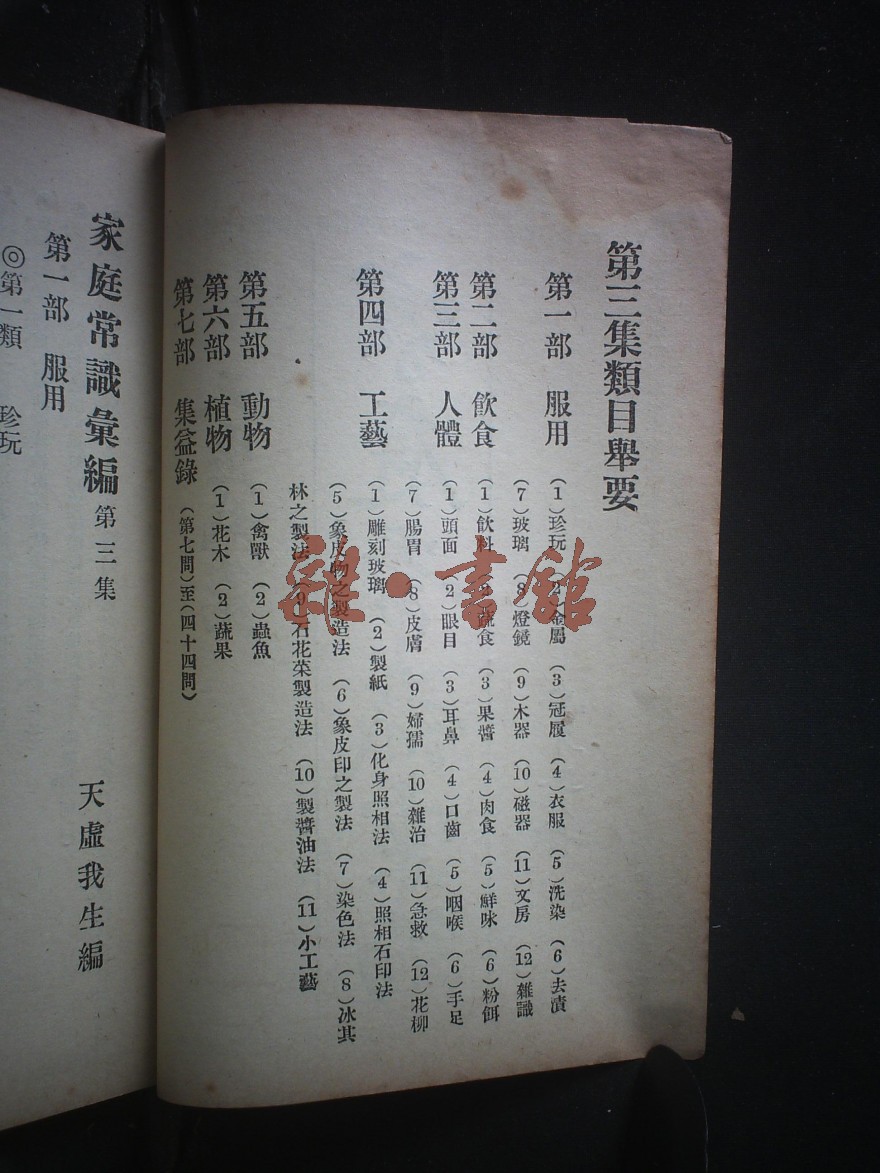 第三集類目舉要
第一部 服用 (1)珍玩 (2)金屬 (3)冠履 (4)衣服 (5)洗染 (6)去漬
(7)玻璃 (8)燈鏡 (9)木器 (10)磁器 (11)文房 (12)雜識
第二部 飲食 (1)飲料 (2)蔬食 (3)果醬 (4)肉食 (5)鮮味 (6)粉餌
第三部 人體 (1)頭面 (2)眼目 (3)耳鼻 (4)口齒 (5)咽喉 (6)手足
(7)腸胃 (8)皮膚 (9)婦孺 (10)雜治 (11)急救 (12)花柳
第四部 工藝 (1)雕刻玻璃 (2)製紙 (3)化身照相法 (4)照相石印法
(5)象皮物之製造法 (6)象皮印之製法 (7)染色法 (8)冰其
林之製法 (9)石花菜製造法 (10)製醬油法 (11)小工藝
第五部 動物 (1)禽獸 (2)蟲魚
第六部 植物 (1)花木 (2)蔬果
第七部 集益錄 (第七問)至(四十四問)
家庭常識彙編 第三集 天虛我生編
第一部 服用
◎第一類 珍玩
雜·書館